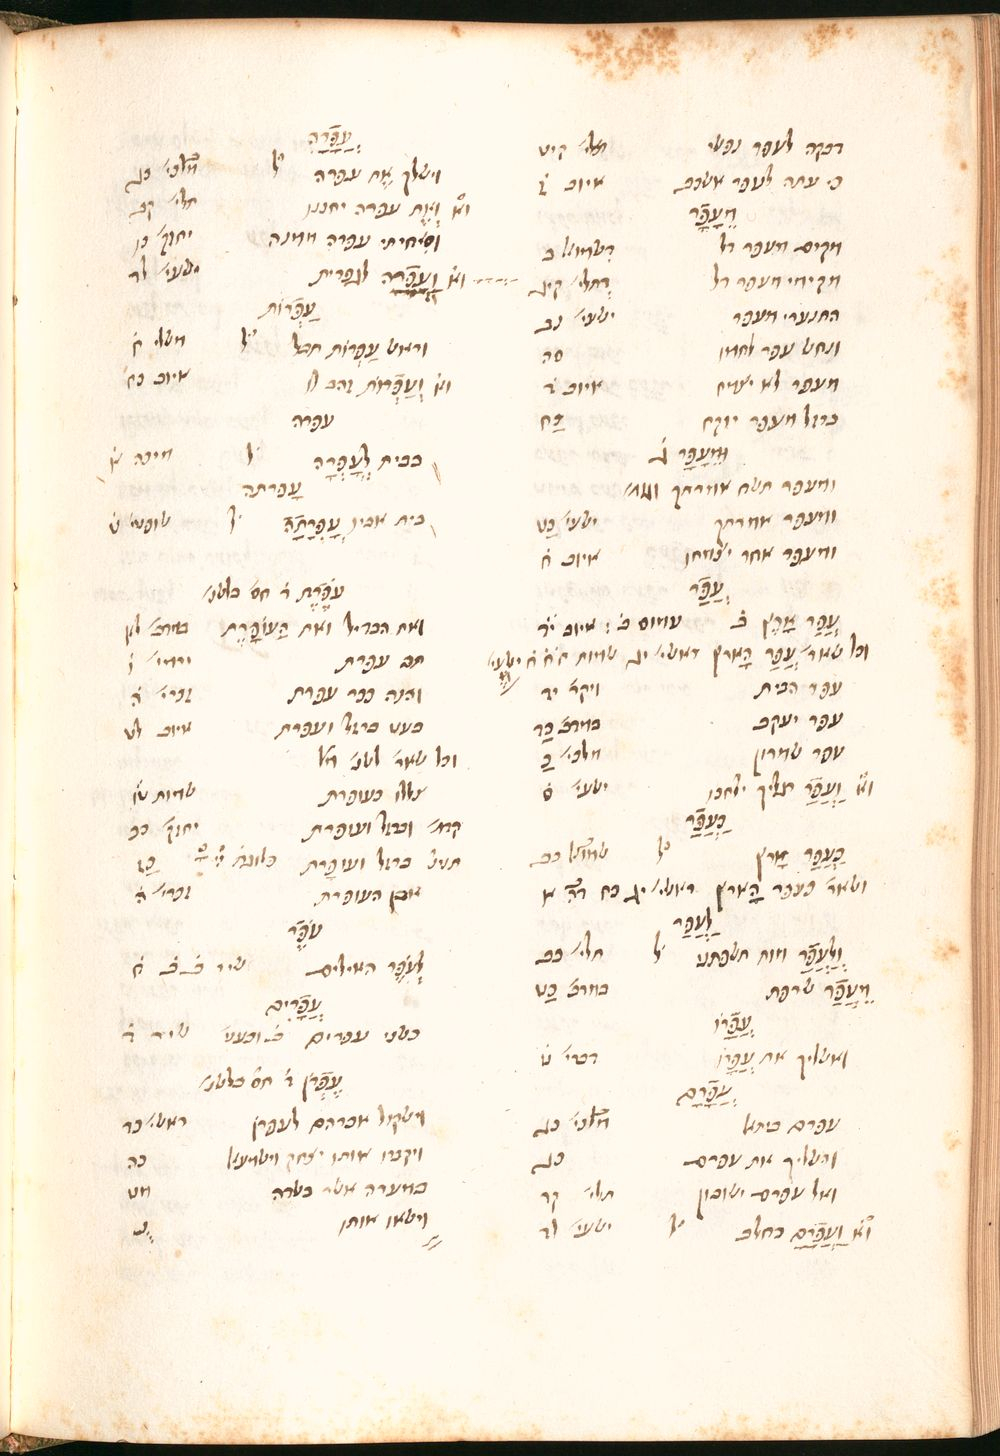 דבקה לעפר נפשי תלי׳ קיט
כי עתה לעפר אשכב איוב ז
מֵעָפָר
מקים מעפר דל דשמואל ב
מקימי מעפר דל דתלי׳ קיג
התנערי מעפר ישעי׳ נב
ונחש עפר לחמו סה
מעפר לא יצמח איוב
ברזל מעפר יוקח כח
וּמֵעָפָר ג
ומעפר תשח אמרתך
ומעפר אמרתך ישעי׳ כט
ומעפר אחר יצמחו איוב ח
עֲפַר
עֲפַר אָרֶץ ב עמוס ב איוב יד
וכל שאר׳ עֲפַר הָארץ ראשי׳ יג שמות ח ישעי׳
עפר הבית ויקר׳ יד
עפר יעקב במדב׳ כג
עפר שמרון מלכי׳ כ
וא׳ וַעֲפַר רגליך ילחכו ישעי׳
כַּעֲפַר
כַּעֲפַר אָרץ ל׳ שמואל כב
ושאר׳ כעפר הָארץ ראשי׳ יג כח
לַעֲפַר
וְלַעֲפַר מות תשפתני ל׳ תלי׳ כב
מֵעֲפַר שרפת במדב׳
עֲפָרוֹ
ואשליך את עֲפָרוֹ דברי׳ ט
עֲפָרָם
עפרם ביתא מלכי׳ כג
והשליך את עפרם כג
ואל עפרם ישובון תלי׳ קד
וא׳ וַעֲפָרָם בחלב ל׳ ישעי׳ לד
עֲפָרָהּ
וישלך אֶת עפרה ל׳ מלכי׳ כג
וא׳ וְאֶת עפרה יחננו תלי׳ קב
וסחיתי עפרה ממנה יחזק׳ כו
וא׳ וַעֲפָרָהּ לגפרית ישעי׳ לד
עַפְרוֹת
וראש עַפְרוֹת תבל ל׳ משלי ח
וא׳ וְעַפְרוֹת זהב לו איוב כח
עפרה
בבית לְעַפְרָה ל׳ מיכה א
עָפרתה
בית אביו עָפְרָתָה ל׳ שופטי׳ ט
עֹפֶרֶת ד׳ חס׳ בלשנ׳
ואת הבדיל ואת הָעוֹפָרֶת במדב׳ לא
תם עפרת ירמי׳ ו
והנה ככר עפרת זכרי׳ ה
בעט ברזל ועפרת איוב יט
וכל שאר׳ לשנ׳ מל׳
צללו כעופרת שמות טו
קדמ׳ וברזל ועופרת יחזק׳ כב
תנינ׳ ברזל ועופָרת כז
אבן העופרת זכרי׳ ה
עֹפֶר
לְעֹפֶר האילים שיר ב ב ח
עֳפָרִים
כשני עפרים שיר ד
עֶפְרֹן ד׳ חס׳ בלשנ׳
וישקול אברהם לעפרן ראשי׳ כד
ויקברו אותו יצחק וישמעאל כה
במערה אשר בשדה מט
וישאו אותו נ